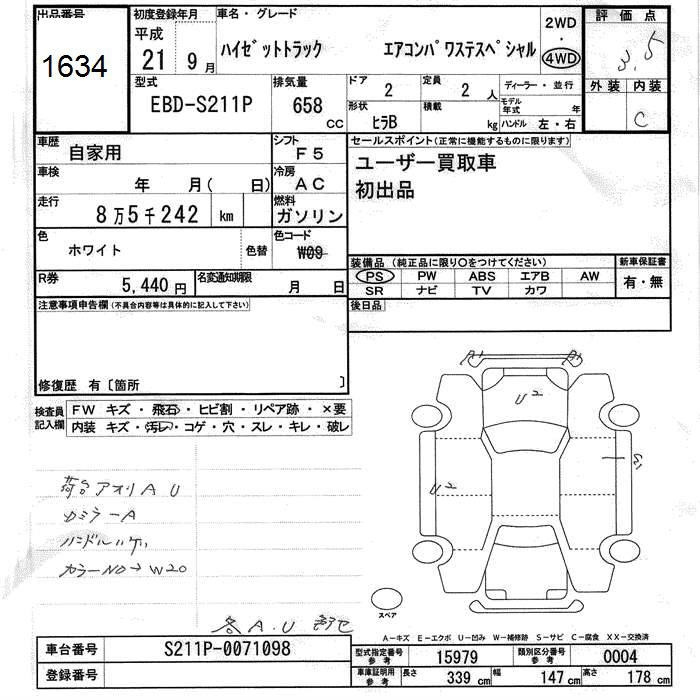 出品番号
1634
初度登録年月
平成
21年 9月
車名・グレード
ハイゼットトラック エアコンパワステスペシャル
2WD
・
4WD
評価点
3.5
外装 内装
C
型式
EBD-S211P
排気量
658 CC
ドア
2
定員
2 人
ディーラー・並行
形状
ヒラB
積載
kg
モデル年式 年
ハンドル 左・右
車歴
自家用
シフト
F5
車検
年 月( 日)
冷房
AC
走行
8万5千242 km
燃料
ガソリン
色
ホワイト
色替
色コード
W09
R券
5,440円
名変通知期限
月 日
セールスポイント(正常に機能するものに限ります)
ユーザー買取車
初出品
装備品(純正品に限り〇をつけてください)
PS PW ABS エアB AW
SR ナビ TV カワ
新車保証書
有・無
後日品
注意事項申告欄(不具合内容等は具体的に記入して下さい)
修復歴 有〔箇所 〕
検査員記入欄
FW キズ・飛石・ヒビ割・リペア跡・×要
内装 キズ・汚レ・コゲ・穴・スレ・キレ・破レ
荷台アオリA U
カラーNO→W20
各A.U
A1 A1
U2
U2
スペア
A-キズ E-エクボ U-凹み W-補修跡 S-サビ C-腐食 XX-交換済
車台番号 S211P-0071098
登録番号
型式指定番号参考 15979
類別区分番号参考 0004
車庫証明用参考 長さ 339cm 幅 147cm 高さ 178cm